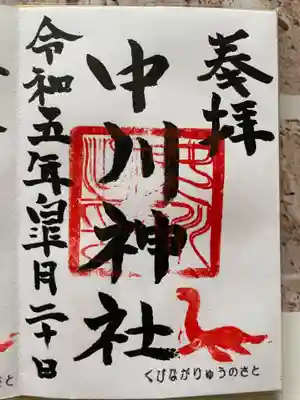 奏拝
中川神社
令和五年皐月二十日
くびながりゅうのさと